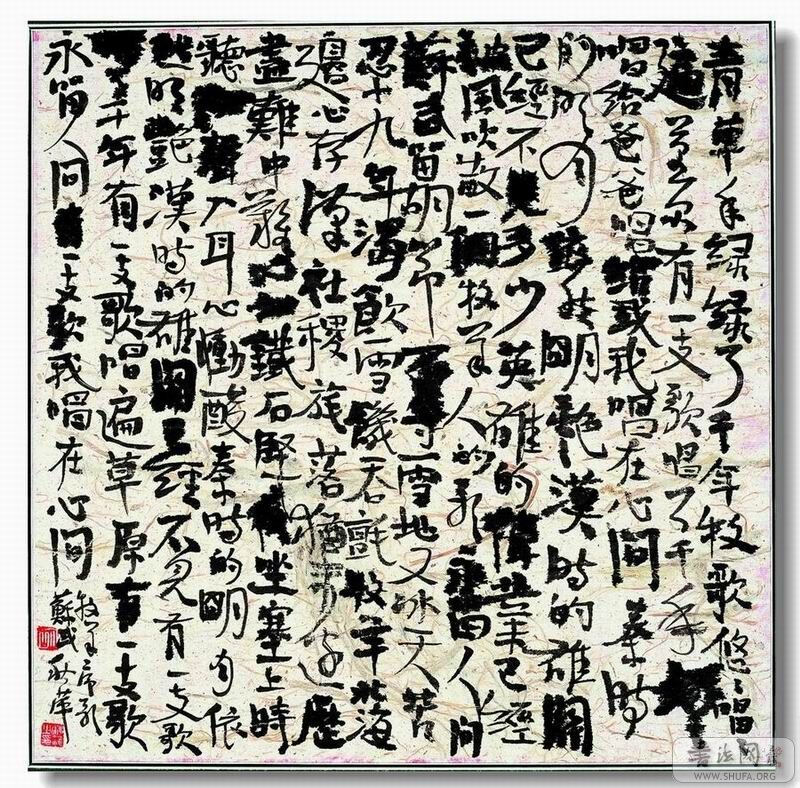 青草年绿绿了千年牧歌悠唱
有一支歌唱了千年
唱给爸爸唱给我我唱在心间 秦时
的明月 明艳汉时的雄关
已经不见多少英雄的 已经
被风吹散一个牧羊人的歌永留人间
苏武留胡节 雪地又冰天苦
忍十九年渴饮雪饥吞毡牧羊北海
边心存汉社稷旄落犹未还历
尽难中难心如铁石坚 坐塞上时
听 声入耳心恸酸秦时的明月依
然明艳汉时的雄关已经不见有一支歌
千年有一支歌唱遍草原有一支歌
永留人间 一支歌我唱在心间
牧羊序歌
苏武 秋萍
书法网
WWW.SHUFA.ORG